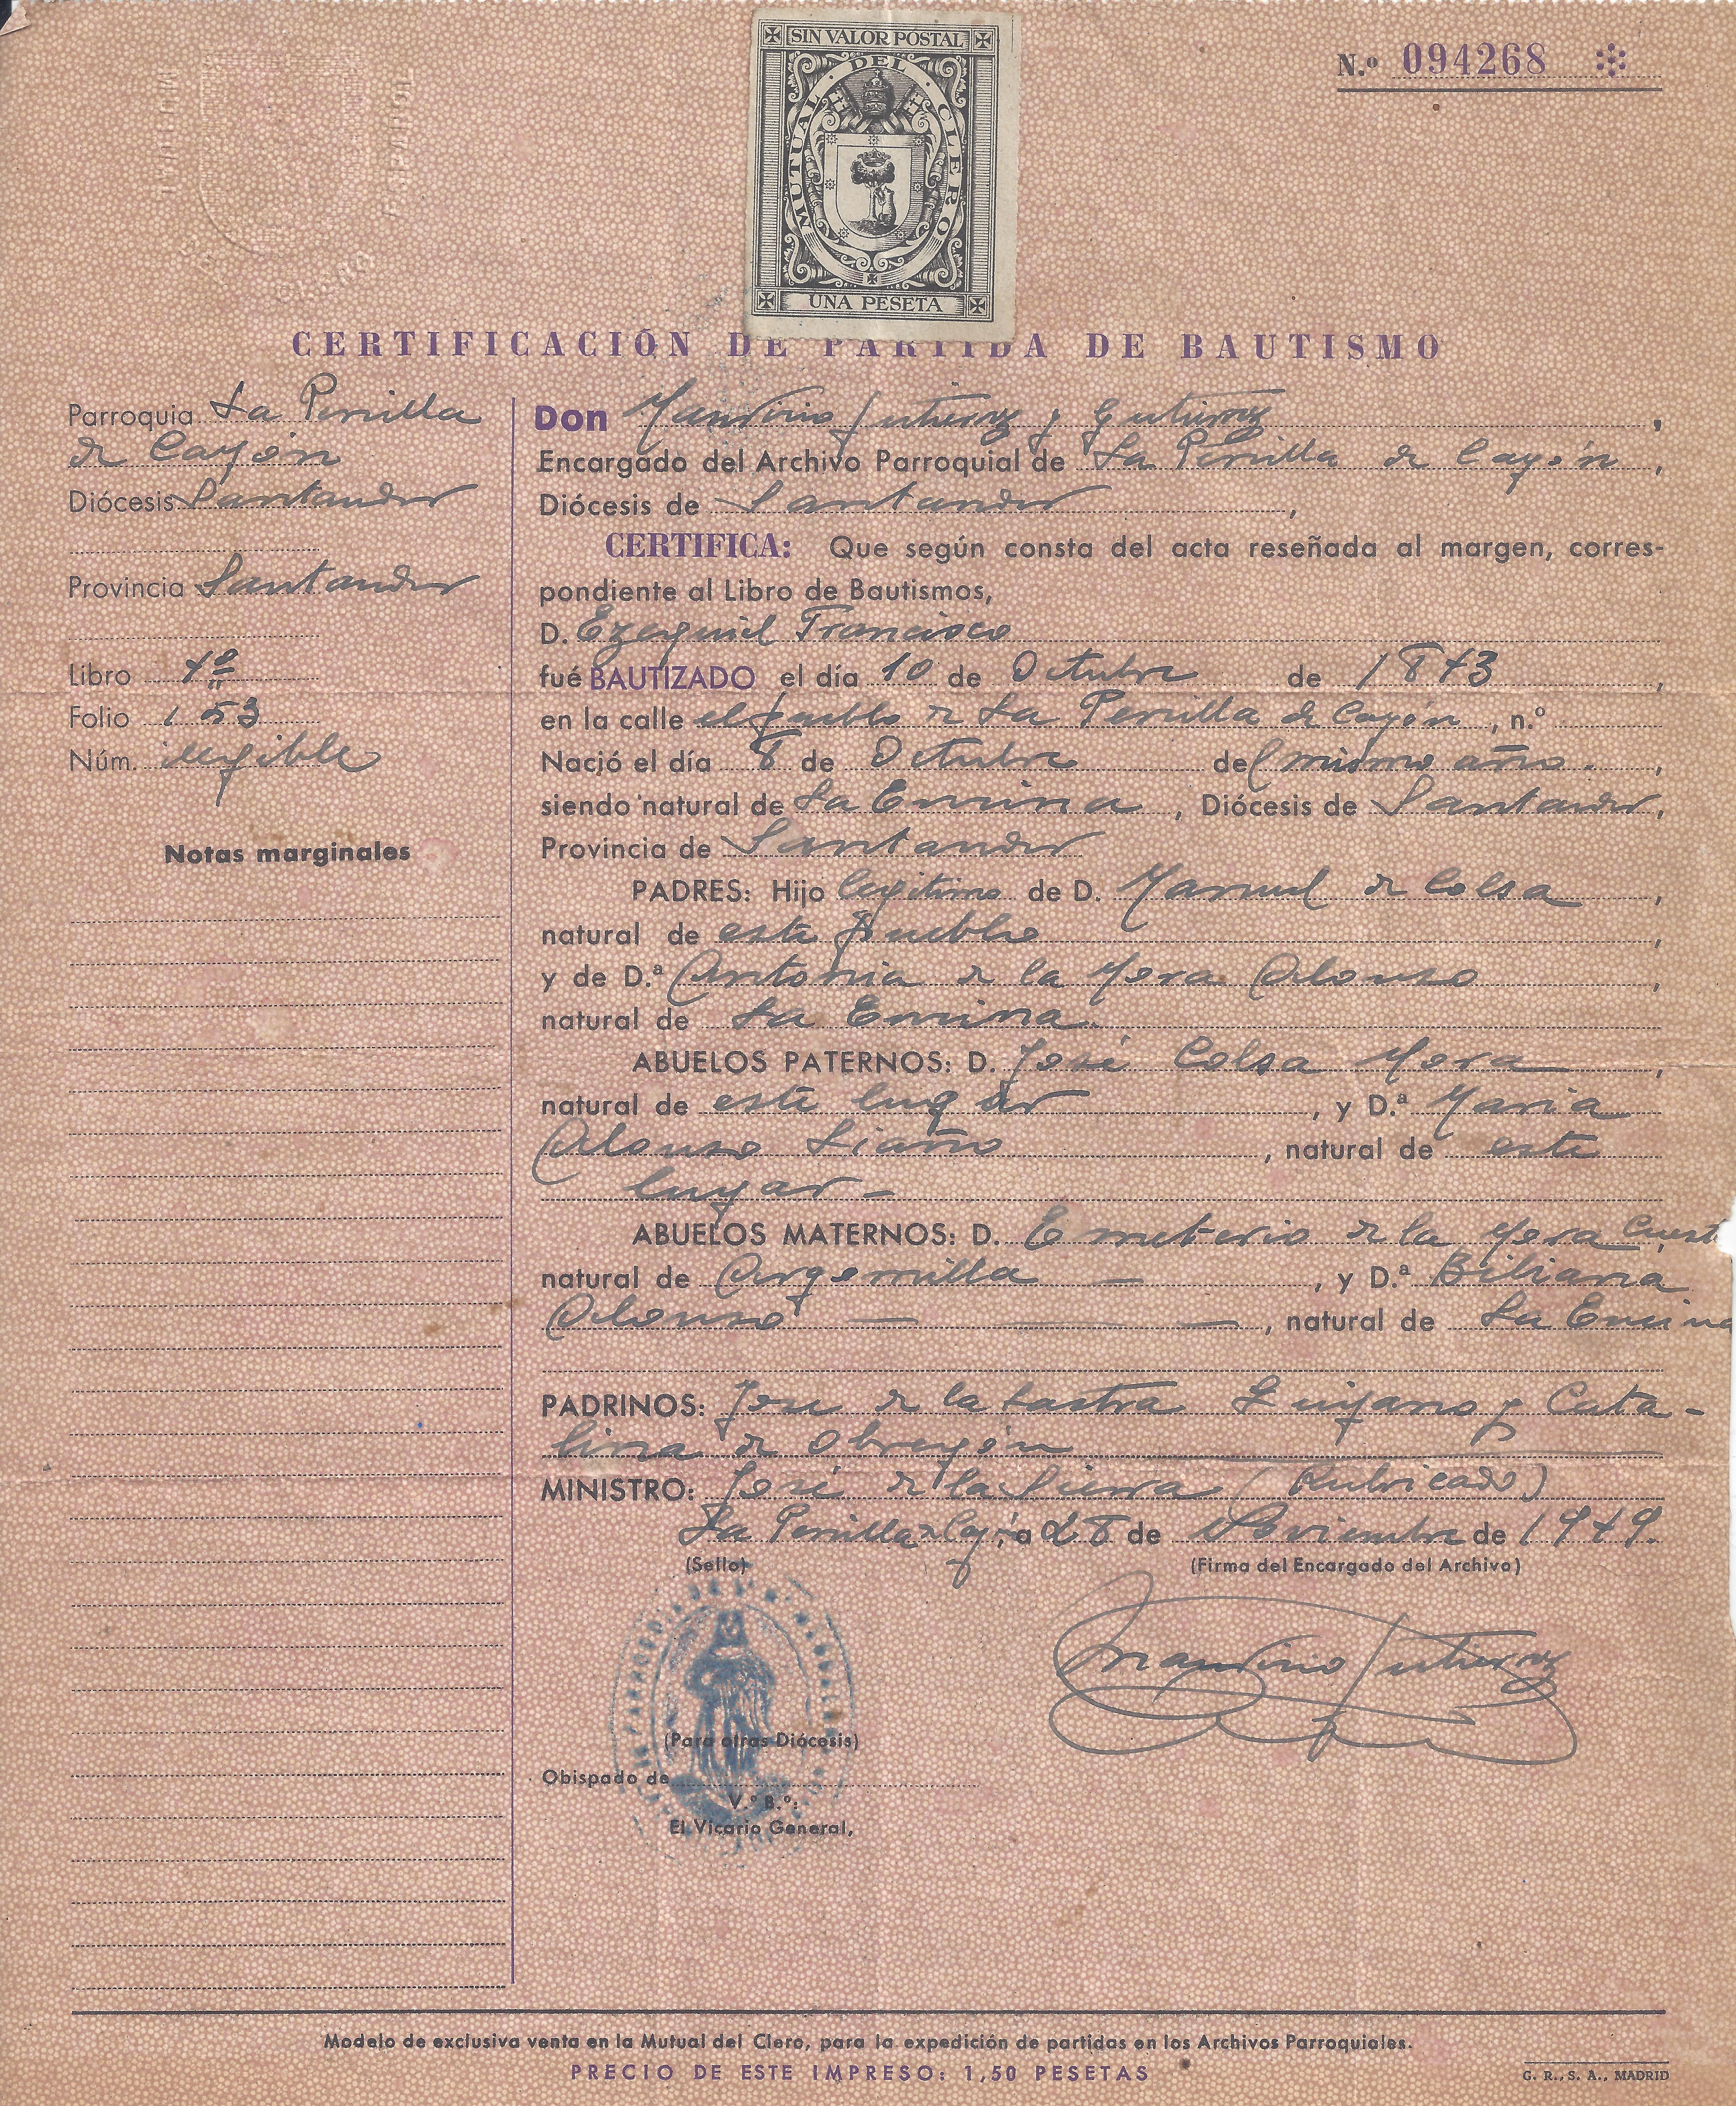 SIN VALOR POSTAL
MUTUAL DEL CLERO
UNA PESETA
N.º 094268
CERTIFICACIÓN DE PARTIDA DE BAUTISMO
Parroquia La Penilla
de Cayón
Diócesis Santander
Provincia Santander
Libro 1º
Folio 153
Núm. ilegible
Notas marginales
Don Gutierrez y Gutierrez,
Encargado del Archivo Parroquial de La Penilla de Cayón,
Diócesis de Santander,
CERTIFICA: Que según consta del acta reseñada al margen, corres-
pondiente al Libro de Bautismos,
D. Ezequiel Francisco
fué BAUTIZADO el día 10 de Octubre de 1843,
en la calle el pueblo de La Penilla de Cayón, n.º
Nació el día 8 de Octubre del mismo año.,
siendo natural de La Encina, Diócesis de Santander,
Provincia de Santander
PADRES: Hijo legitimo de D. Manuel de Colsa,
natural de este pueblo,
y de D.ª Antonia de la Mora Alonso,
natural de La Encina.
ABUELOS PATERNOS: D. José Colsa Mora,
natural de este lugar, y D.ª Maria
Alonso Liaño, natural de este
lugar -
ABUELOS MATERNOS: D. Emeterio de la Mora Cuest
natural de Argomilla —, y D.ª Bibiana
Alonso — — —, natural de La Encina
PADRINOS: Jose de la Lastra Quijano y Cata-
lina de Obregón
MINISTRO: José de la Sierra (Rubricado)
La Penilla de a 28 de Noviembre de 1949.
(Sello)
(Firma del Encargado del Archivo)
Gutierrez
(Para otras Diócesis)
Obispado de
V.º B.º:
El Vicario General,
Modelo de exclusiva venta en la Mutual del Clero, para la expedición de partidas en los Archivos Parroquiales.
PRECIO DE ESTE IMPRESO: 1,50 PESETAS
G. R., S. A., MADRID